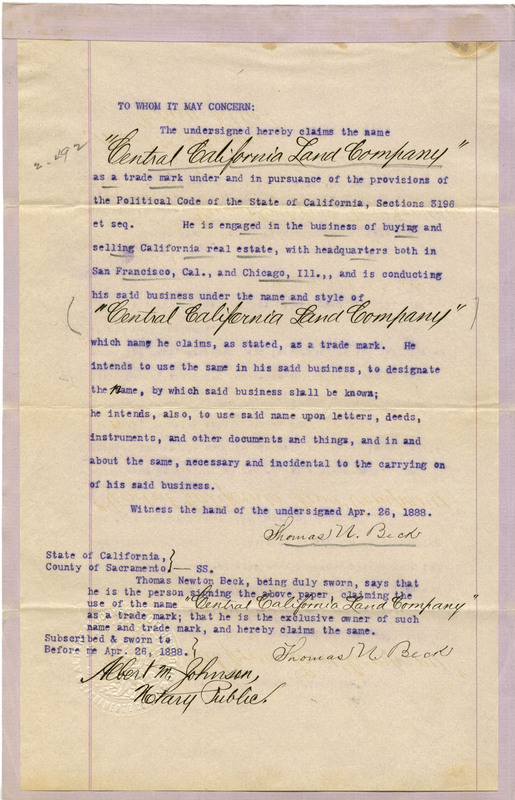 TO WHOM IT MAY CONCERN:
The undersigned hereby claims the name
"Central California Land Company"
as a trade mark under and in pursuance of the provisions of
the Political Code of the State of California, Sections 3196
et seq. He is engaged in the business of buying and
selling California real estate, with headquarters both in
San Francisco, Cal., and Chicago, Ill.,, and is conducting
his said business under the name and style of
("Central California Land Company")
which name he claims, as stated, as a trade mark. He
intends to use the same in his said business, to designate
the name, by which said business shall be known;
he intends, also, to use said name upon letters, deeds,
instruments, and other documents and things, and in and
about the same, necessary and incidental to the carrying on
of his said business.
Witness the hand of the undersigned Apr. 26, 1888.
Thomas N. Beck
State of California,}
County of Sacramento}— SS.
Thomas Newton Beck, being duly sworn, says that
he is the person signing the above paper, claiming the
use of the name "Central California Land Company"
as a trade mark; that he is the exclusive owner of such
name and trade mark, and hereby claims the same.
Subscribed & sworn to
Before me Apr. 26, 1888.} Thomas N. Beck
Albert M. Johnson,
Notary Public.